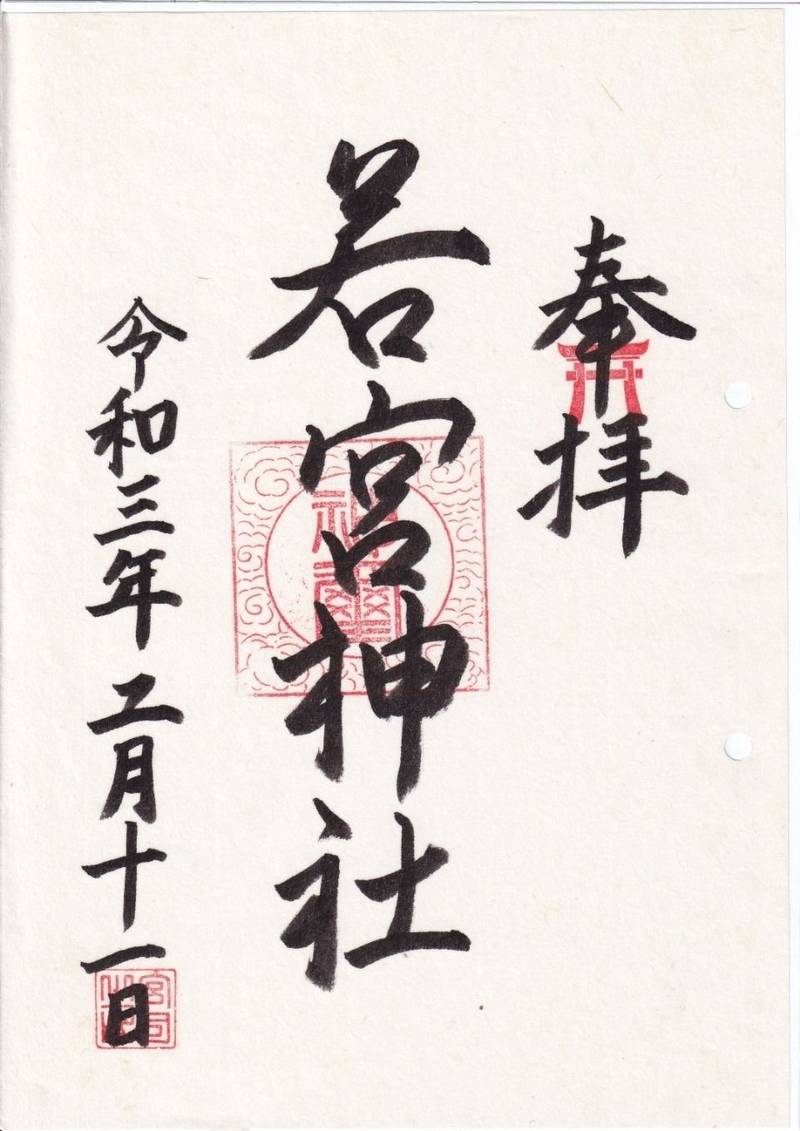 奉拝
若宮神社
令和三年二月十一日